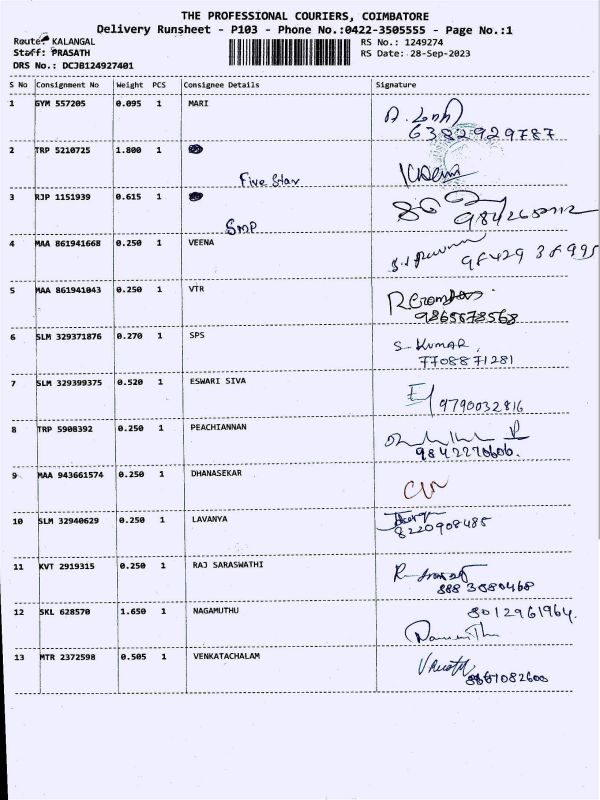 THE PROFESSIONAL COURIERS, COIMBATORE
Delivery Runsheet - P103 - Phone No.:0422-3505555 - Page No.:1
Route: KALANGAL RS No.: 1249274
Staff: PRASATH RS Date: 28-Sep-2023
DRS No.: DCJB124927401
S No Consignment No Weight PCS Consignee Details Signature
1 GYM 557205 0.095 1 MARI
63829 29787
2 TRP 5210725 1.800 1
Five Star
3 RJP 1151939 0.615 1
SMP
4 MAA 861941668 0.250 1 VEENA
5 MAA 861941043 0.250 1 VTR
6 SLM 329371876 0.270 1 SPS S- KUMAR.
7708871281
7 SLM 329399375 0.520 1 ESWARI SIVA
9790032816
8 TRP 5908392 0.250 1 PEACHIANNAN
9842270606.
9 MAA 943661574 0.250 1 DHANASEKAR
10 SLM 32940629 0.250 1 LAVANYA
8220908485
11 KVT 2919315 0.250 1 RAJ SARASWATHI
12 SKL 628570 1.650 1 NAGAMUTHU 8012961964.
13 MTR 2372598 0.505 1 VENKATACHALAM